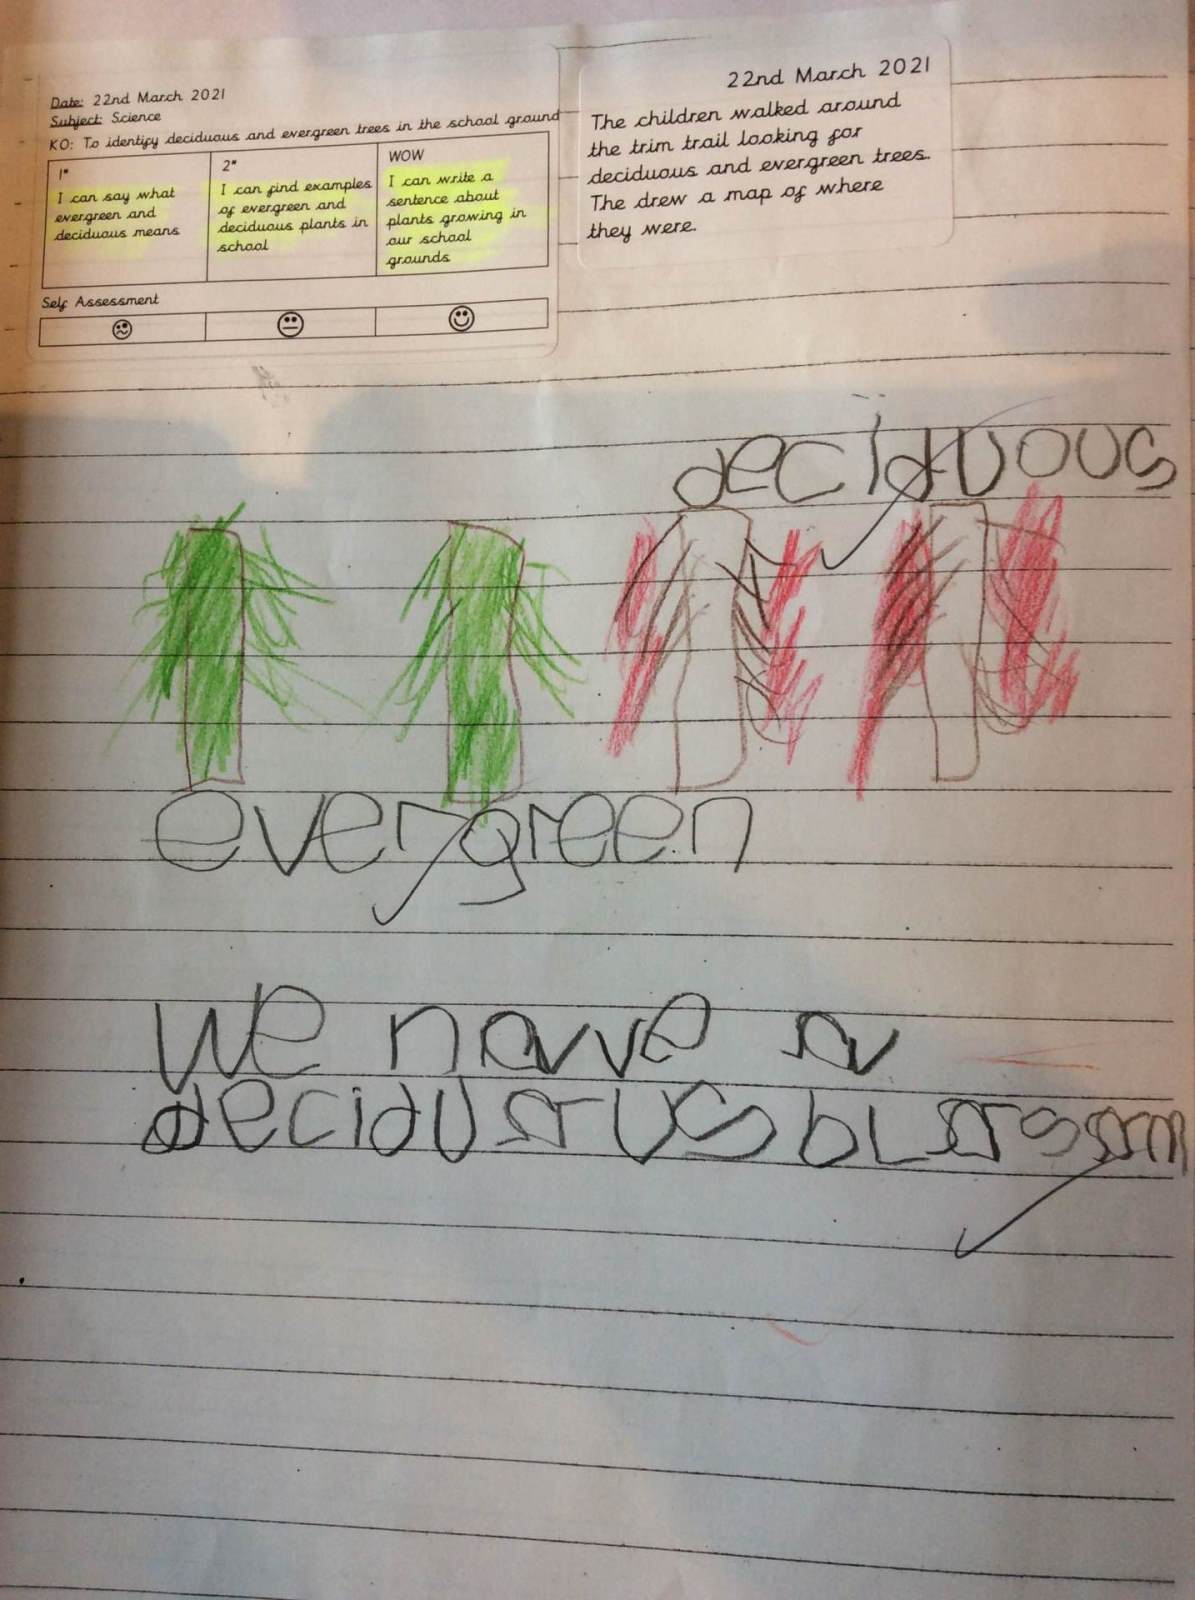 Date: 22nd March 2021
Subject: Science
KO: To identify deciduous and evergreen trees in the school ground
1*
I can say what
evergreen and
deciduous means
2*
I can find examples
of evergreen and
deciduous plants in
school
WOW
I can write a
sentence about
plants growing in
our school
grounds
Self Assessment
22nd March 2021
The children walked around
the trim trail looking for
deciduous and evergreen trees.
The drew a map of where
they were.
deciduous
evergreen
We have a
deciduous blossom